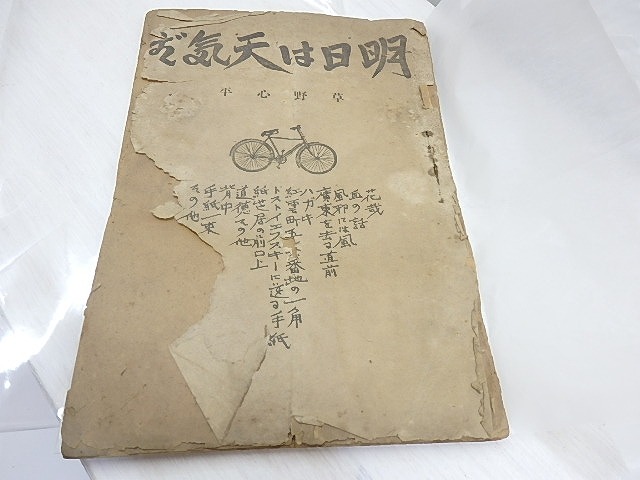 明日は天気だ
草野心平
花哉
血の話
風邪には風
廣東を去る直前
ハガキ
町五番地の一角
ドストイエフスキーに送る手紙
紙芝居の前口上
道徳その他
背中
手紙一束
その他